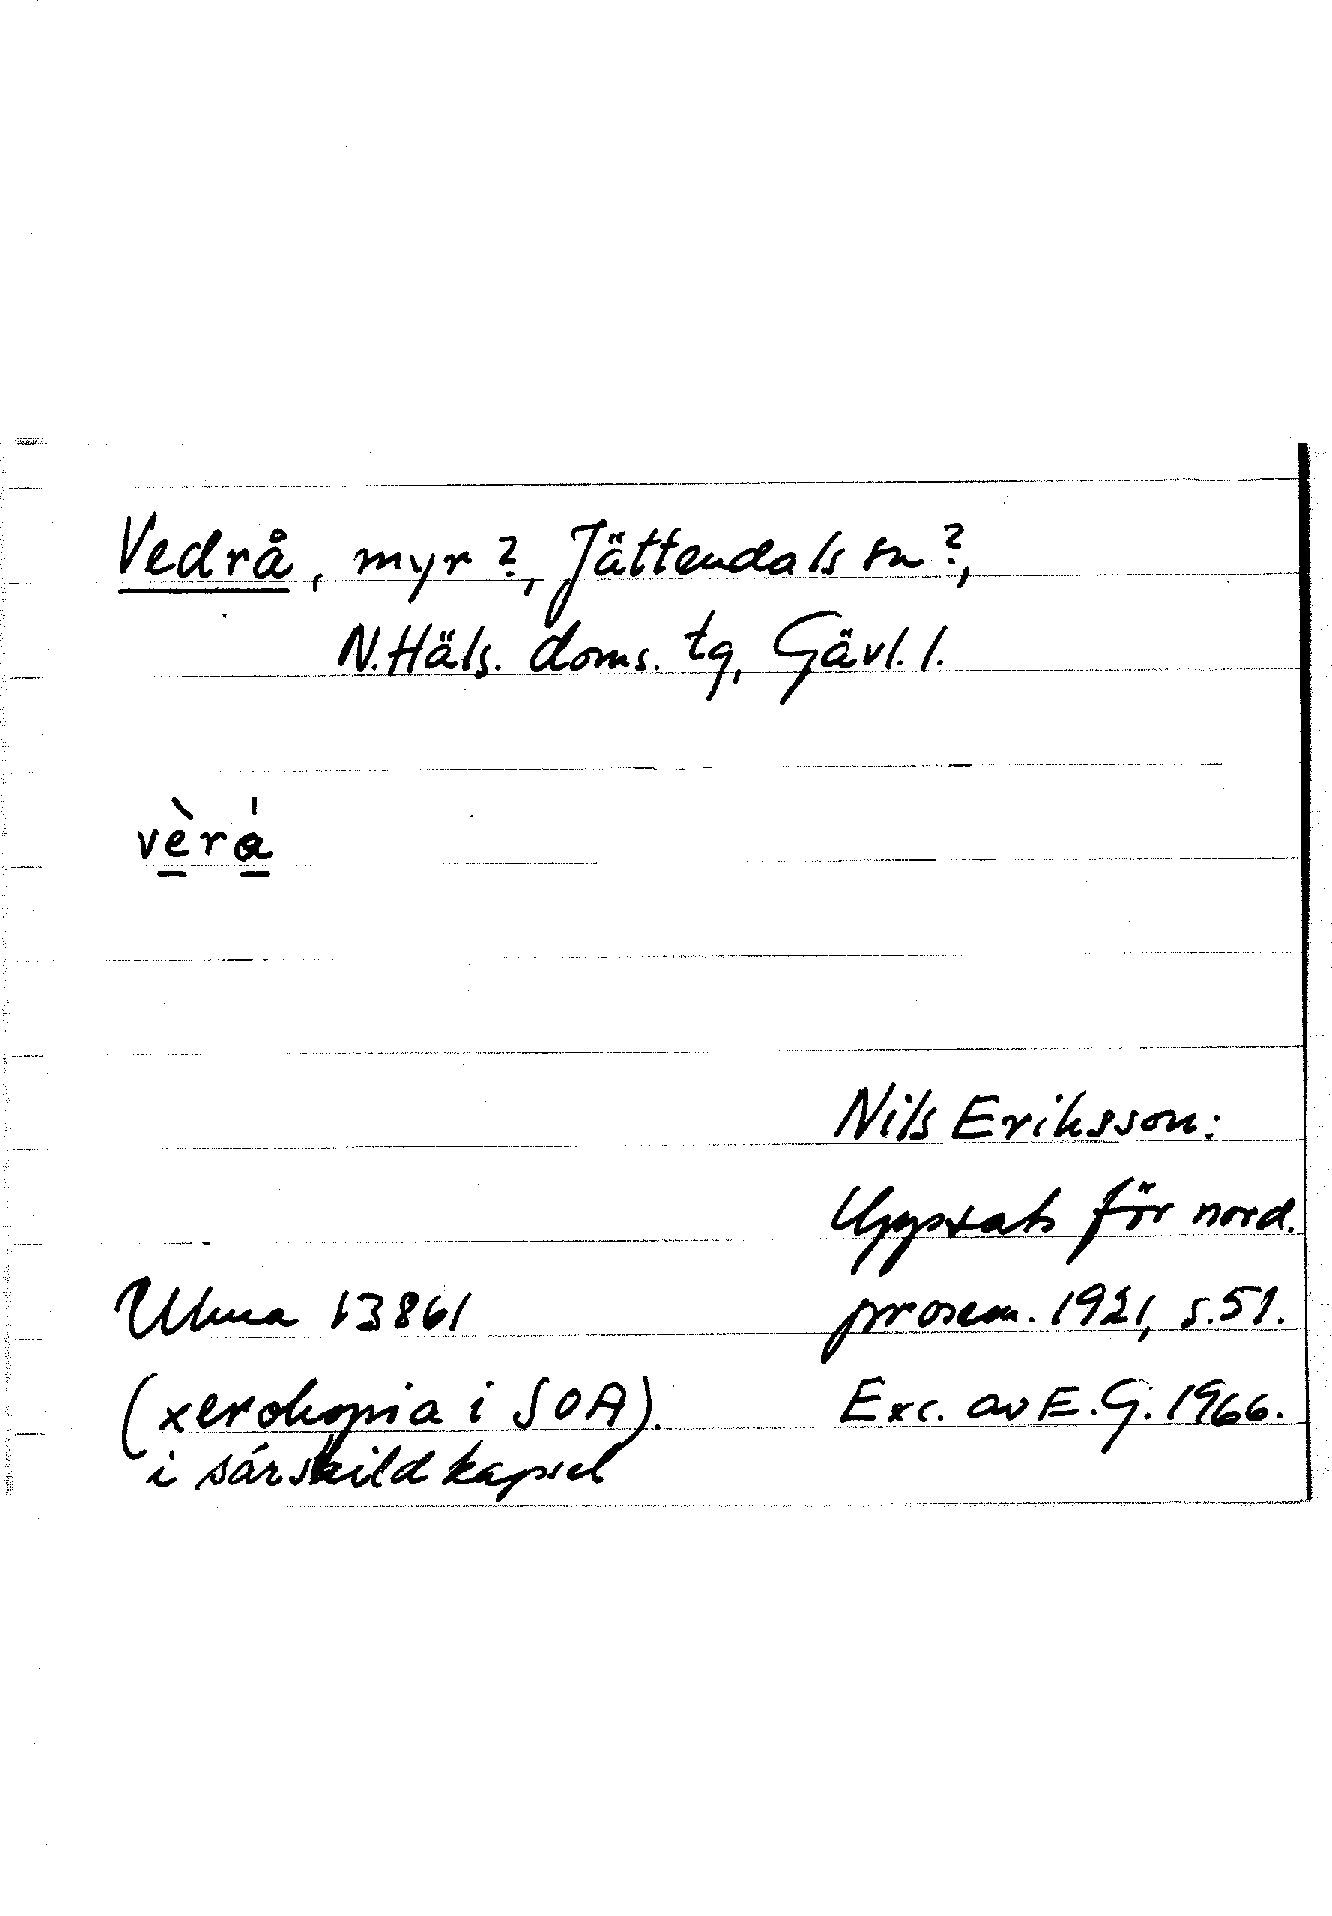 Vedrå, myr?, Jättendals sn?,
N. Häls. doms. tg, Gävl. l.
vèrá
Nils Eriksson:
Uppsats för nord.
Ulma 13861
prosem. 1921, s. 51.
(xerokopia i SOA).
Exc. av E. G. 1966.
i särskild kapsel